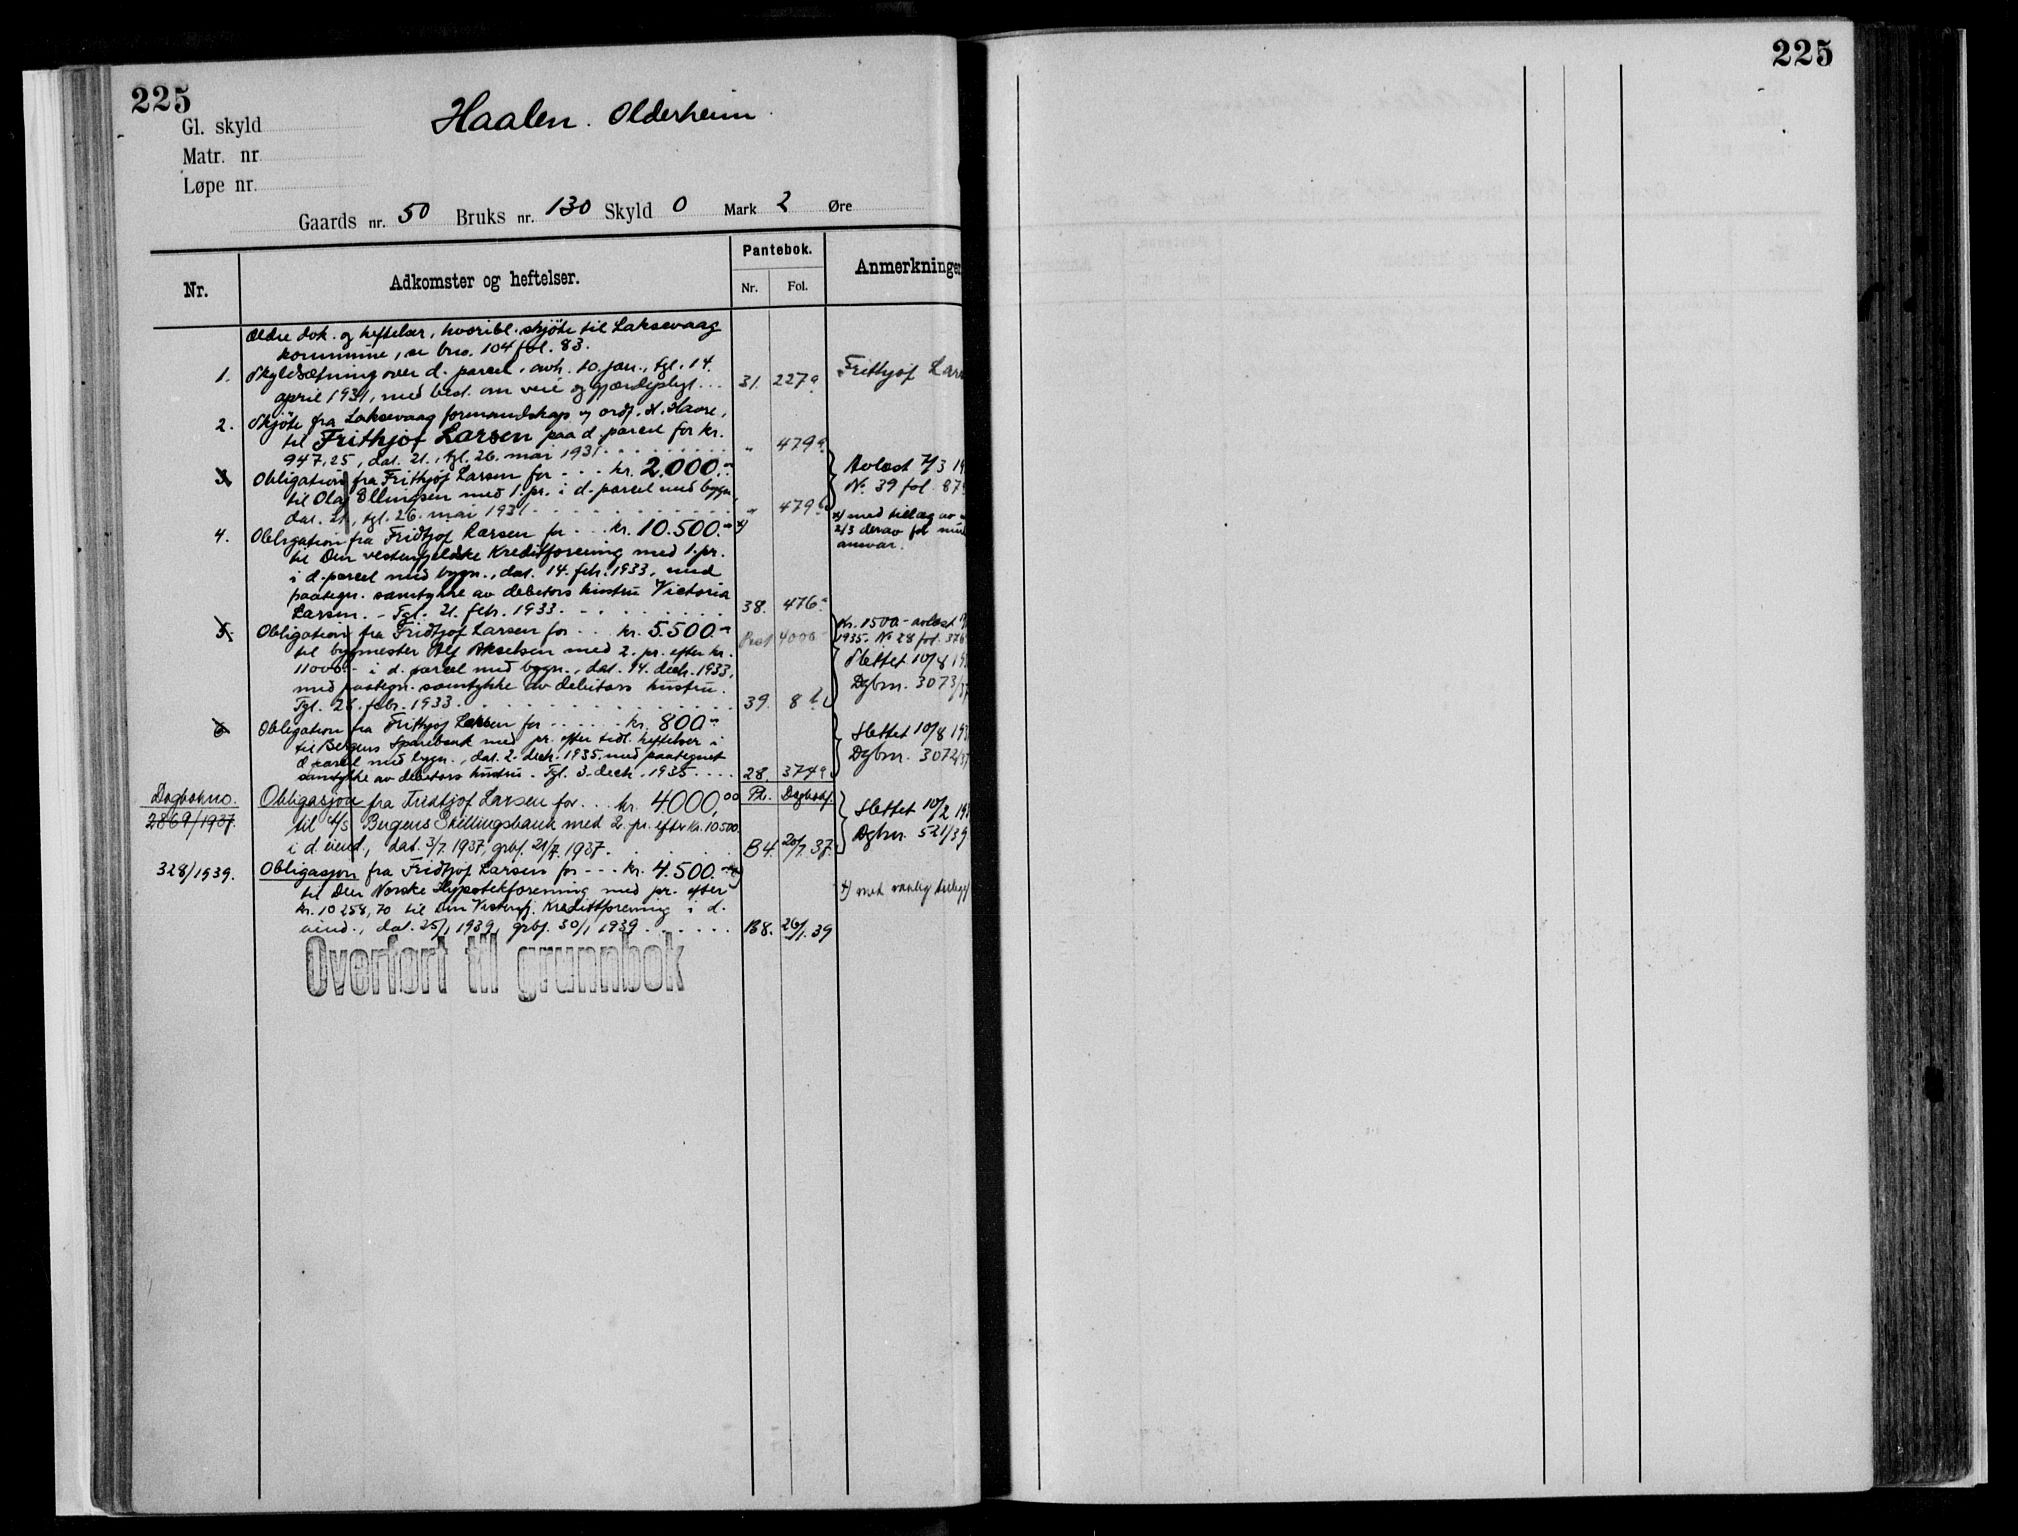 225
225
Haalen. Olderheim.
Gl. skyld
Matr. nr.
Løpe nr.
Gaards nr. 50 Bruks nr. 130 Skyld 0 Mark 2 Øre
Nr.
Adkomster og heftelser.
Pantebok.
Nr. Fol.
Anmerkninger
Ældre dok. og heftelser, hvoribl. skjöte til Laksevaag
kommune, se bno. 104 fol. 83.
1. Skyldsætning over d. parcel, avh. 10. jan., tgl. 14.
april 1931, med best. om veie og gjærdepligt... 31. 227a Frithjof Lars
2. Skjöte fra Laksevaag formandskap v/ ordf. H. Haare,
til Frithjof Larsen paa d. parcel for kr.
947,25, dat. 21., tgl. 26. mai 1931. " 479a
3. Obligation fra Frithjof Larsen for ... kr. 2.000.-
til Olaf Ellingsen med 1. pr. i d. parcel med bygn.,
dat. 21., tgl. 26. mai 1931 " 479b
Avlæst 7/3 19
Nr. 39 fol. 87
4. Obligation fra Fridtjof Larsen for ... kr. 10.500.- x)
til Den vestenfjeldske Kreditforening med 1. pr.
i d. parcel med bygn., dat. 14. febr. 1933, med
paategn. samtykke av debitors hustru Victoria
Larsen. - Tgl. 21. febr. 1933. 38. 476a
x) med tillæg av
2/3 derav for
ansvar.
5. Obligation fra Fridtjof Larsen for ... kr. 5.500.-
til bygmester Alf Akselsen med 2. pr. efter kr.
11000.- i d. parcel med bygn., dat. 14. decbr. 1933,
med paategn. samtykke av debitors hustru.
Tgl. 28. febr. 1933. 39. 8b
Rest 4000.-
Kr. 1500.- avlæst
1935. Nr 28 fol. 376
Slettet 10/8 19
Dgbnr. 3073/37
6. Obligation fra Frithjof Larsen for ... kr. 800.-
til Bergens Sparebank med pr. efter tidl. heftelser i
d. parcel med bygn., dat. 2. decbr. 1935, med paategnet
samtykke av debitors hustru. Tgl. 3. decbr. 1935.... 28. 374a
Slettet 10/8 19
Dgbnr. 3072/37
Dagbokno.
2869/1937.
Obligasjon fra Fridtjof Larsen for... kr. 4000,00
til A/S Bergens Skillingsbank med 2. pr. efter kr. 10500
i d. eiend., dat. 3/7. 1937, grbf. 21/7. 1937. B4. 20/7. 37.
Pb. Dagbokf.
Slettet 10/2 19
Dgbnr. 521/39
328/1939.
Obligasjon fra Fridtjof Larsen for ... kr. 4.500.- x)
til Den Norske Hypotekforening med pr. efter
kr. 10258,70 til Den Vestenfj. Kredittforening i d.
eiend., dat. 25/1 1939, grbf. 30/1 1939..... B8. 26/1. 39
x) med vanlig tillegg
Overført til grunnbok